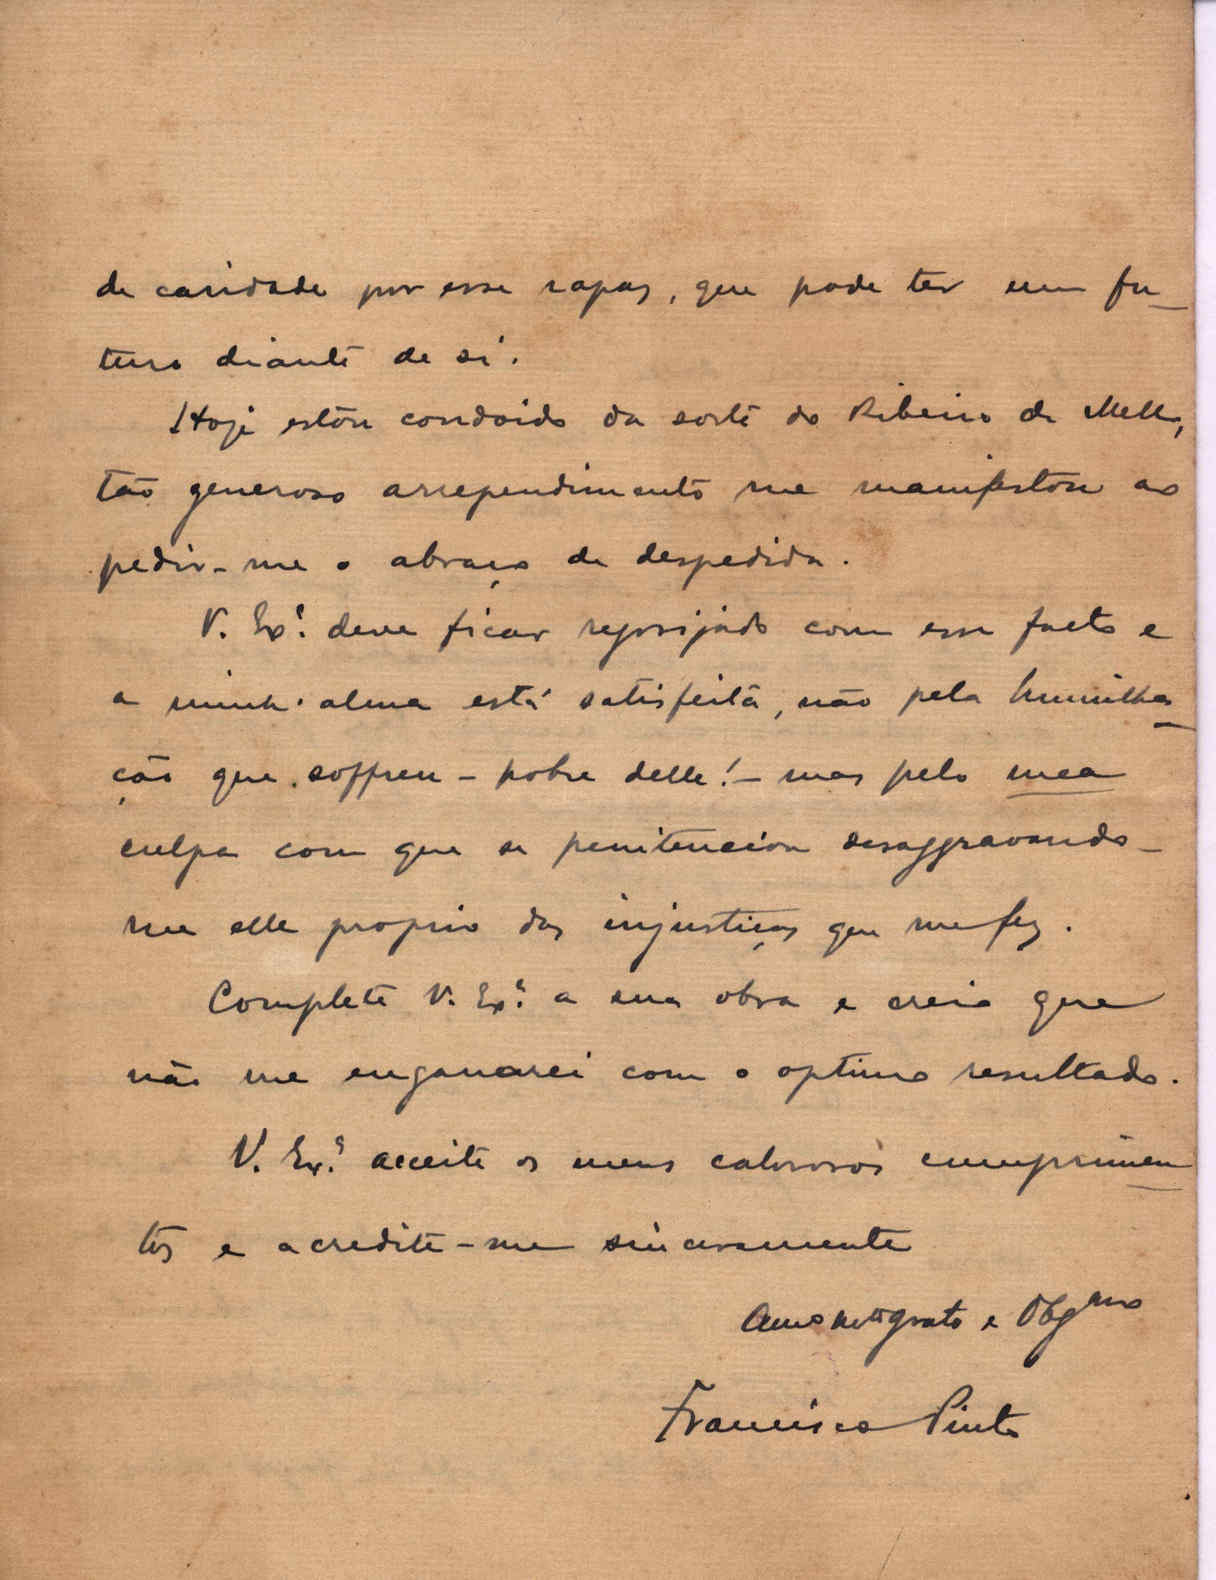 de caridade por esse rapaz, que pode ter um fu-
turo diante de si.
Hoje estou condoido da sorte do Ribeiro de Mello,
tão generoso arrependimento me manifestou ao
pedir-me o abraço de despedida.
V. Exª deve ficar regosijado com esse facto e
a minh'alma está satisfeita, não pela humilha-
ção que soffreu - pobre delle! - mas pelo mea
culpa com que se penitenciou desaggravando-
me elle proprio das injustiças que me fez.
Complete V. Exª a sua obra e creio que
não me enganarei com o optimo resultado.
V. Exª acceite os meus calorosos cumprimen-
tos e acredite-me sinceramente
Amo mto grato e Obgmo
Francisco Pinto